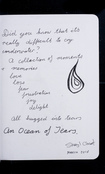 Did you know that its
really difficult to cry
underwater?
A collection of moments
+ memories
love
loss
fear
frustration
joy
delight
All hugged with tears
An Ocean of Tears